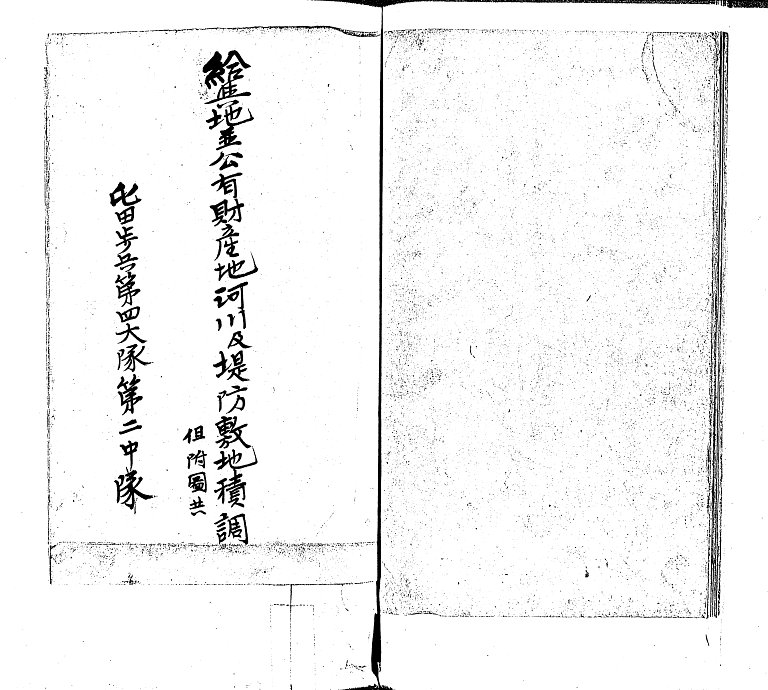 給与地並公有財産地河川及堤防敷地積調
但附図共
屯田歩兵第四大隊第二中隊